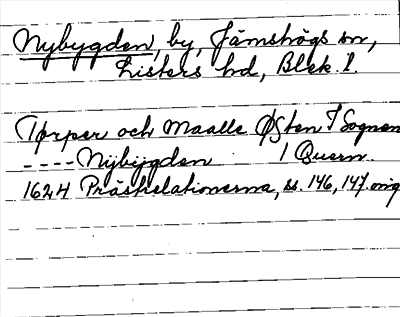 Nybygden, by, Jämshögs sn,
Listers hd, Blek. l.
Torper och Maalle Østen I Sognen
---- Nÿbÿgden 1 Quern.
1624 Prästrelationerna, ss. 146, 147. orig